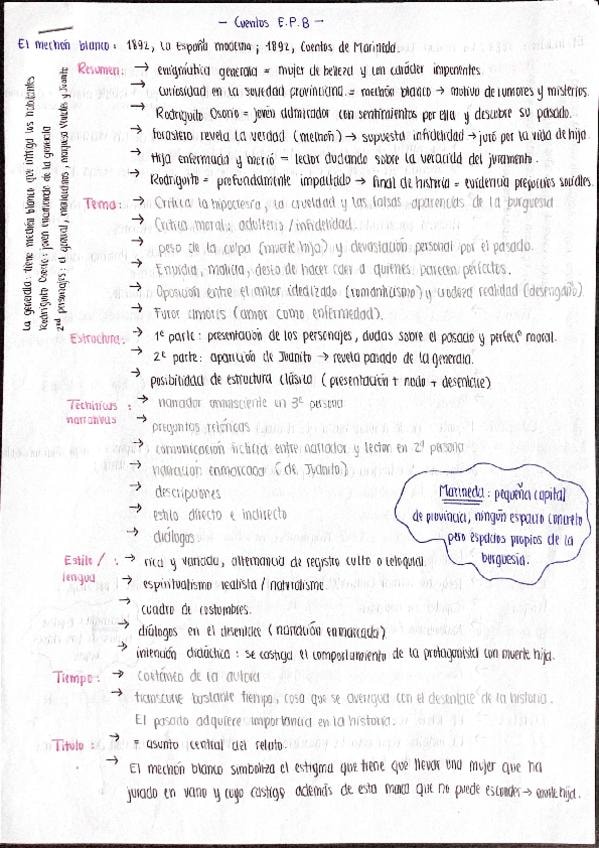 - Cuentos E.P.B -
El mechón blanco: 1892, La España moderna; 1892, Cuentos de Marineda.
Resumen: → enigmática generala = mujer de belleza y un carácter imponentes.
→ curiosidad en la sociedad provinciana = mechón blanco → motivo de rumores y misterios.
→ Rodriguito Osorio = joven admirador con sentimientos por ella y descubre su pasado.
→ forastero revela la verdad (mechón) → supuesta infidelidad → juró por la vida de hija.
→ Hija enfermada y murió = lector dudando sobre la veracidad del juramento.
→ Rodriguito = profundamente impactado → final de historia = evidencia prejuicios sociales.
Tema: → Crítica la hipocresía, la crueldad y las falsas apariencias de la burguesía
→ Crítica moral: adulterio/infidelidad.
→ peso de la culpa (muerte hija) y devastación personal por el pasado.
→ Envidia, malicia, deseo de hacer caer a quienes parecen perfectos.
→ Oposición entre el amor idealizado (romanticismo) y crudeza realidad (desengaño).
→ Furor amoris (amor como enfermedad).
Estructura: → 1ª parte: presentación de los personajes, dudas sobre el pasado y perfecº moral.
→ 2ª parte: aparición de Juanito → revela pasado de la generala.
→ posibilidad de estructura clásica (presentación + nudo + desenlace)
Técnicas narrativas: → narrador omnisciente en 3ª persona
→ preguntas retóricas
→ comunicación ficticia entre narrador y lector en 2ª persona
→ narración enmarcada (de Juanito)
→ descripciones
→ estilo directo e indirecto
→ diálogos
Marineda: pequeña capital
de provincia, ningún espacio concreto
pero espacios propios de la
burguesía.
Estilo/lengua: → rica y variada, alternancia de registro culto o coloquial.
→ espiritualismo realista / naturalismo
→ cuadro de costumbres.
→ diálogos en el desenlace (narración enmarcada)
→ intención didáctica: se castiga el comportamiento de la protagonista con muerte hija.
Tiempo: → coetáneo de la autora
→ transcurre bastante tiempo, cosa que se averigua con el desenlace de la historia.
El pasado adquiere importancia en la historia.
Título: → = asunto central del relato.
→ El mechón blanco simboliza el estigma que tiene que llevar una mujer que ha
jurado en vano y cuyo castigo además de esta marca que no puede esconder → muerte hija.
La generala: tiene mechón blanco que intriga los habitantes
Rodriguito Osorio: joven enamorado de la generala
2ºˢ personajes: el general, Juanito